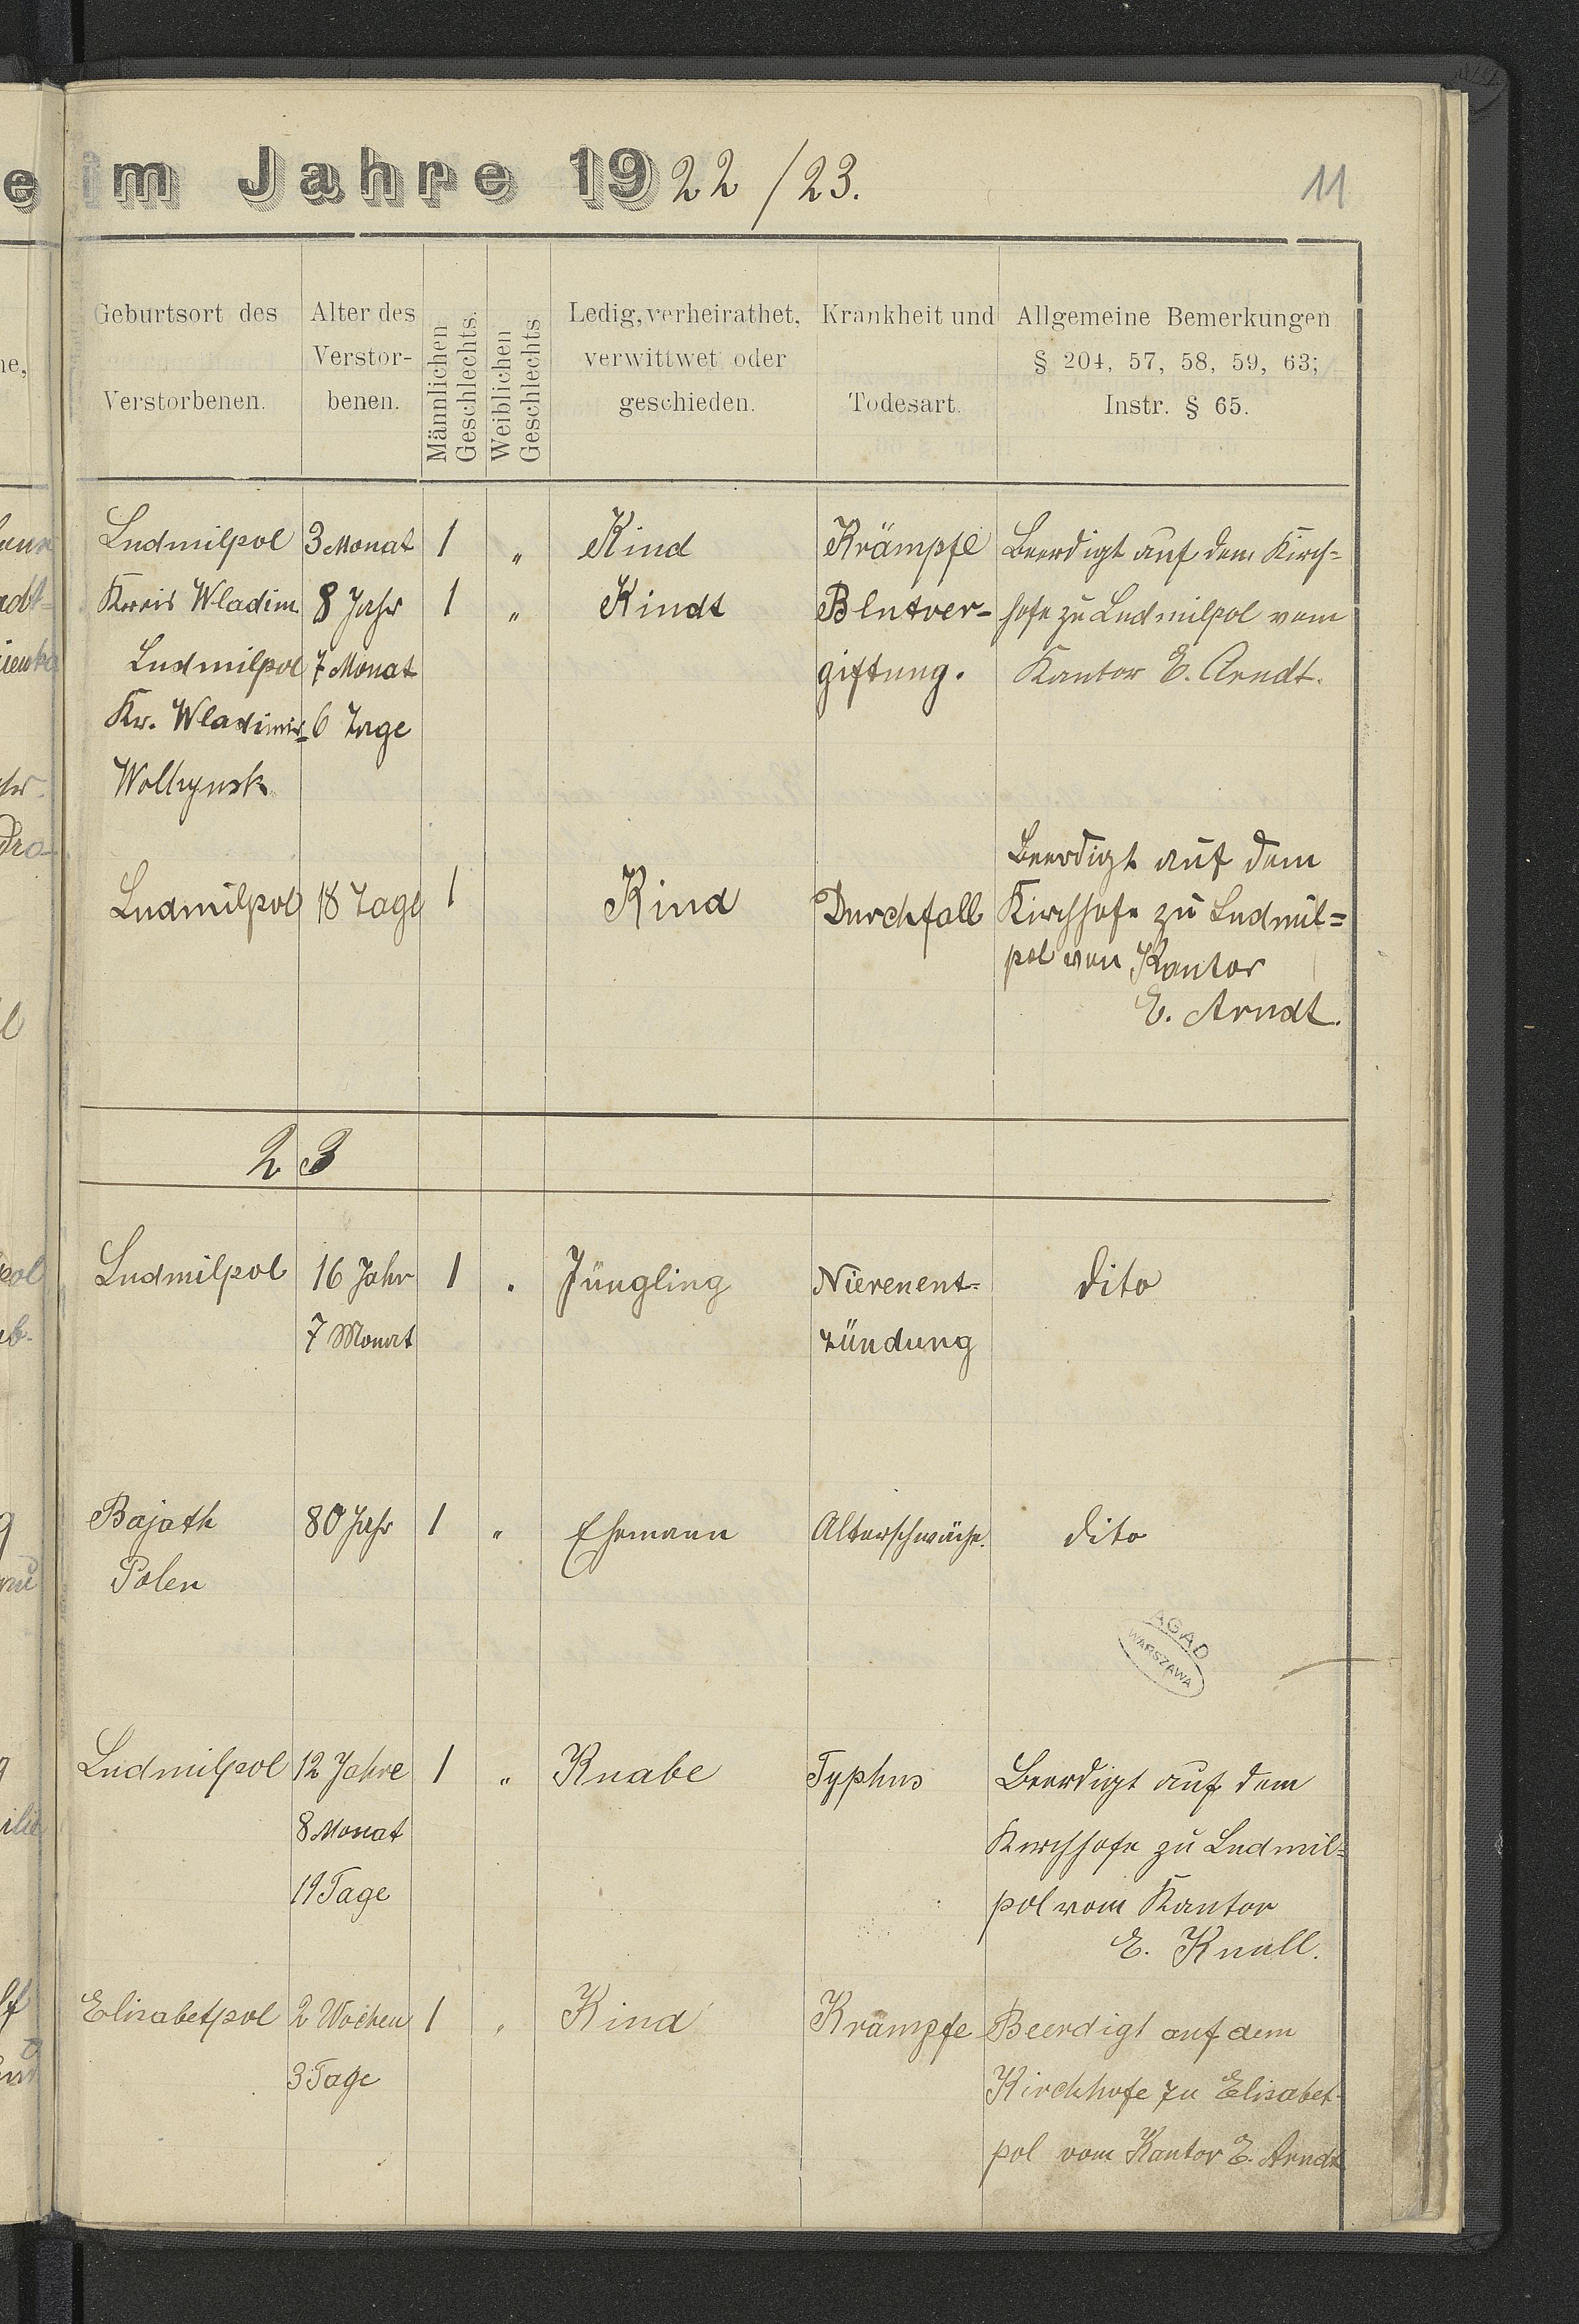 im Jahre 1922/23.
11
Geburtsort des Verstorbenen.
Alter des Verstor-benen.
Männlichen Geschlechts.
Weiblichen Geschlechts
Ledig, verheirathet, verwittwet oder geschieden.
Krankheit und Todesart.
Allgemeine Bemerkungen § 204, 57, 58, 59, 63; Instr. § 65.
Ludmilpol 3 Monat 1 " Kind Krämpfe Beerdigt auf dem Kirch=
Kreis Wladim. 8 Jahr 1 " Kindt Blutver- hofe zu Ludmilpol vom
Ludmilpol 7 Monat giftung. Kantor E. Arndt.
Kr. Wladimir= 6 Tage
Wolhynsk
Beerdigt auf dem
Ludmilpol 18 Tage 1 Kind Durchfall Kirchhofe zu Ludmil=
pol von Kantor
E. Arndt.
23
Ludmilpol 16 Jahr 1 " Jüngling Nierenent- dito
7 Monat zündung
Bajath 80 Jahr 1 " Ehemann Alterschwäche. dito
Polen
AGAD
WARSZAWA
Ludmilpol 12 Jahre 1 " Knabe Typhus Beerdigt auf dem
8 Monat Kirchhofe zu Ludmil=
19 Tage pol vom Kantor
E. Knull.
Elisabetpol 2 Wochen 1 " Kind Krämpfe Beerdigt auf dem
3 Tage Kirchhofe zu Elisabet-
pol vom Kantor E. Arndt